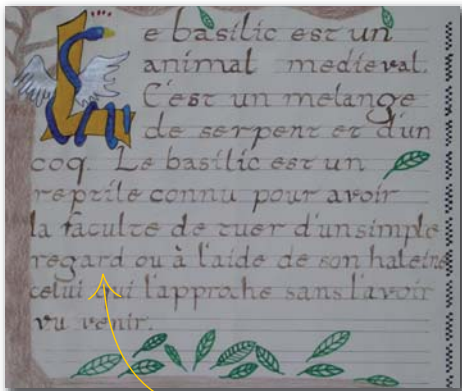 Le basilic est un
animal medieval.
C'est un melange
de serpent et d'un
coq. Le basilic est un
reptile connu pour avoir
la faculte de tuer d'un simple
regard ou à l'aide de son haleine
celui qui l'approche sans l'avoir
vu venir.